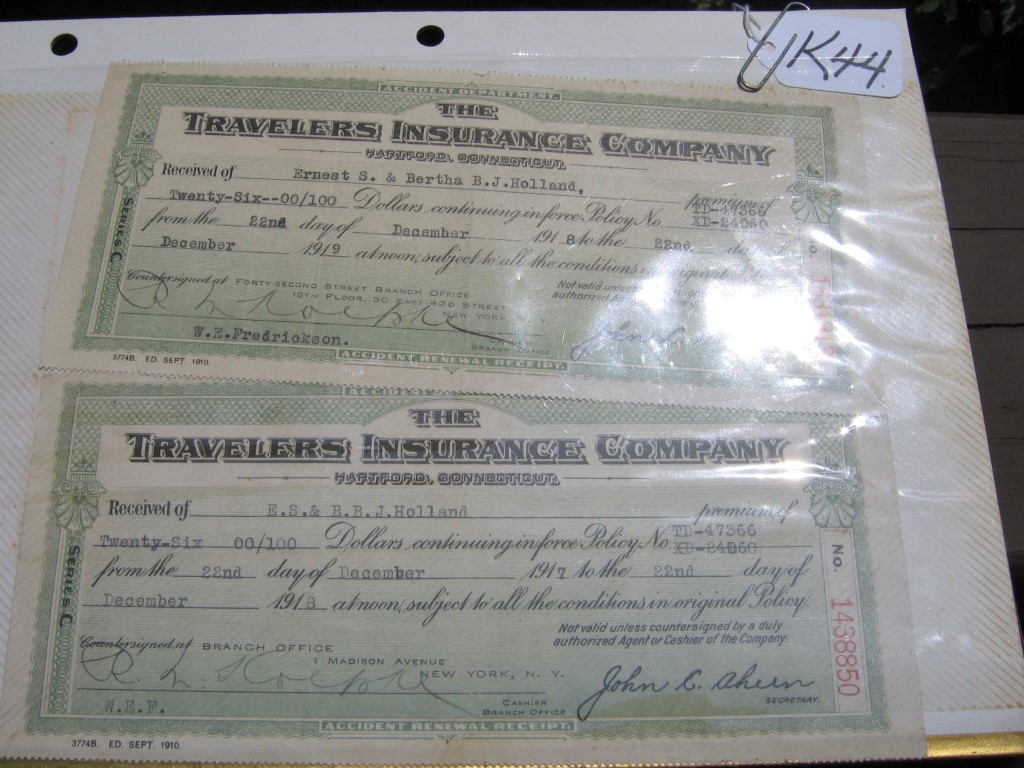 UK44
ACCIDENT DEPARTMENT.
THE
TRAVELERS INSURANCE COMPANY
HARTFORD, CONNECTICUT.
Received of Ernest S. & Bertha B.J.Holland, premium of
Twenty-Six--00/100 Dollars, continuing in force Policy No. TD-47366
XD-24060
from the 22nd day of December 1918 to the 22nd day of
December 1919 at noon, subject to all the conditions in original
Countersigned at FORTY-SECOND STREET BRANCH OFFICE
Not valid unless
12TH FLOOR, 30 EAST 42D STREET
authorized Agent
NEW YORK, N. Y.
W.E.Fredrickson.
BRANCH OFFICE
SERIES C
No.
3774B. ED. SEPT. 1910.
ACCIDENT RENEWAL RECEIPT.
THE
TRAVELERS INSURANCE COMPANY
HARTFORD, CONNECTICUT.
Received of E.S.& B.B.J.Holland premium of
Twenty-Six 00/100 Dollars, continuing in force Policy No. TD-47366
XD-24060
from the 22nd day of December 1917 to the 22nd day of
December 1918 at noon, subject to all the conditions in original Policy.
Not valid unless countersigned by a duly
authorized Agent or Cashier of the Company.
Countersigned at BRANCH OFFICE
1 MADISON AVENUE
NEW YORK, N. Y.
John C. Ahern
SECRETARY.
W.E.F.
CASHIER
BRANCH OFFICE
SERIES C
No. 1438850
3774B. ED. SEPT. 1910.
ACCIDENT RENEWAL RECEIPT.